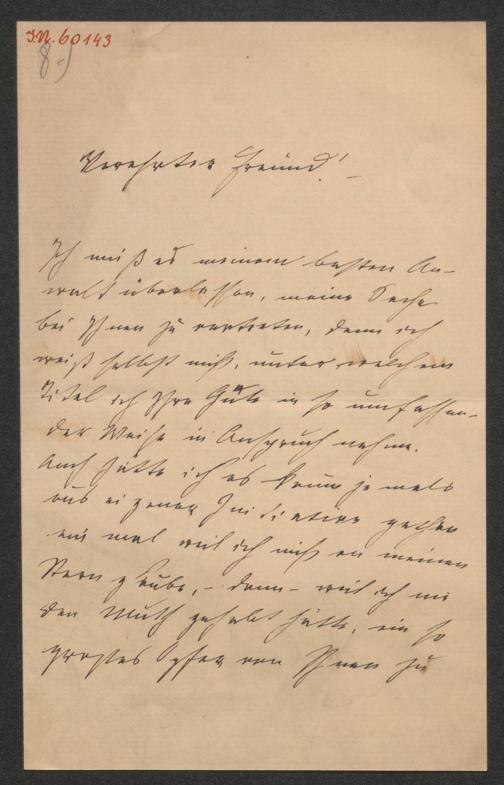 I.N. 60143
8.)
Verehrter Freund! –
Ich muß es meinem besten An-
walt überlassen, meine Sache
bei Ihnen zu vertreten, denn ich
weiß selbst nicht, unter welchem
Titel ich Ihre Güte in so umfassen-
der Weise in Anspruch nehme.
Auch hätte ich es kaum jemals
aus eigener Initiative gethan
ein mal weil ich nicht an meinen
Stern glaube, – dann – weil ich nie
den Muth gehabt hätte, ein so
großes Opfer von Ihnen zu